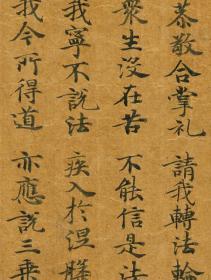 恭敬合掌礼 請我轉法輪
衆生沒在苦 不能信是法
我寧不說法 疾入於涅槃
我今所得道 亦應說三乗